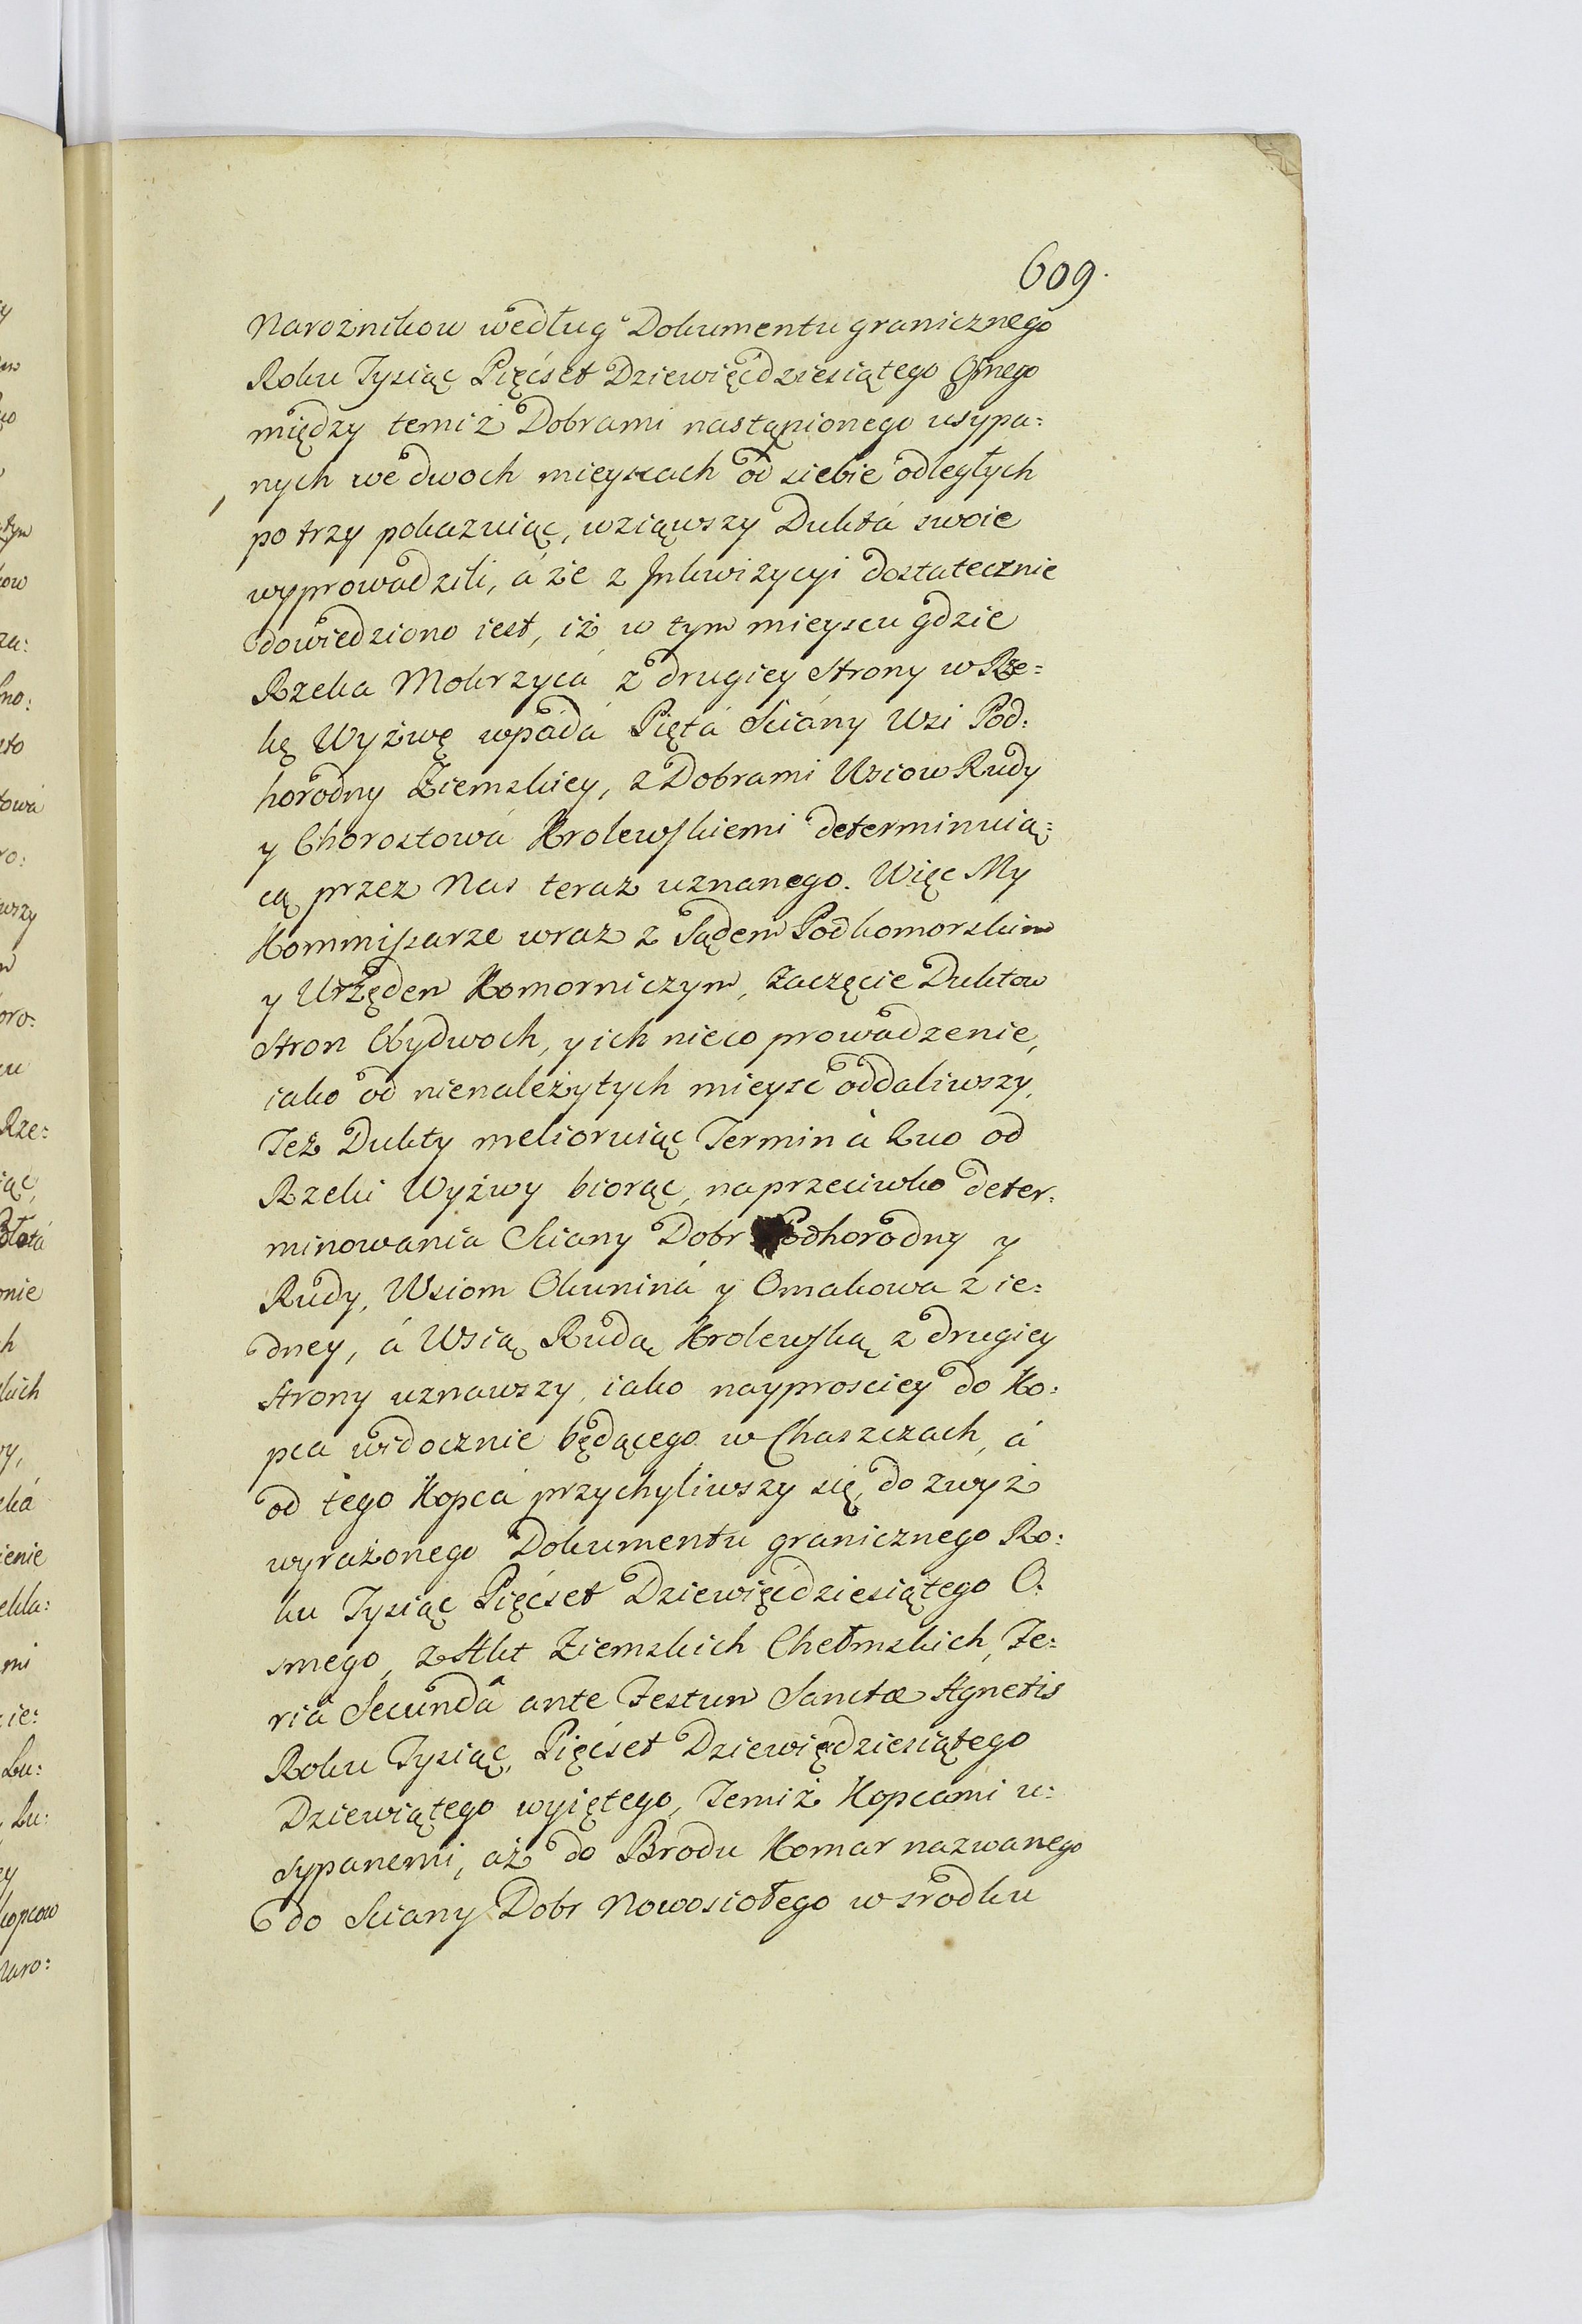 609.
Narożnikow według Dokumentu granicznego
Roku Tysiąc Pięćset Dziewięćdziesiątego Osmego
między temiż Dobrami nastąpionego usypa:
nych we dwoch mieyscach od siebie odległych
po trzy pokazuiąc, wziąwszy Duktá swoie
wyprowadzili, á że z Inkwizycyi dostatecznie
dowiedziono iest, iż w tym mieyscu gdzie
Rzeka Mokrzycá z drugiey strony w Rze:
kę Wyżwę wpádá Piętá Sciány Wsi Pod:
horodny Ziemskiey, z Dobrami Wsiow Rudy
y Chorostowá Krolewskiemi determinuią:
cą przez Nas teraz uznanego. Więc My
Kommissarze wraz z Sądem Podkomorskim
y Urzędem Komorniczym, Zaczęcie Duktow
Stron Obydwoch, y ich nieco prowadzenie,
iako od nienależytych mieysć oddaliwszy,
Też Dukty melioruiąc Termin à Quo od
Rzeki Wyżwy biorąc, naprzeciwko deter:
minowania Sciany Dobr Podhorodny y
Rudy, Wsiom Okuniná y Omakowa z ie:
dney, á Wsią Rudą Krolewską z drugiey
strony uznawszy, iako nayprosciey do Ko:
pca widocznie będącego w Chaszczach, á
od tego Kopcá przychyliwszy się, do zwyż
wyrażonego Dokumentu granicznego Ro:
ku Tysiąc Pięćset Dziewięćdziesiątego O:
smego, z Akt Ziemskich Chełmskich, Fe:
ria Secundâ ante Festum Sanctæ Agnetis
Roku Tysiąc, Pięćset Dziewiędziesiątego
Dziewiątego wyiętego, Temiż Kopcami u:
sypanemi, aż do Brodu Komar nazwanego
do Sciany Dobr Nowosiołego w srodku